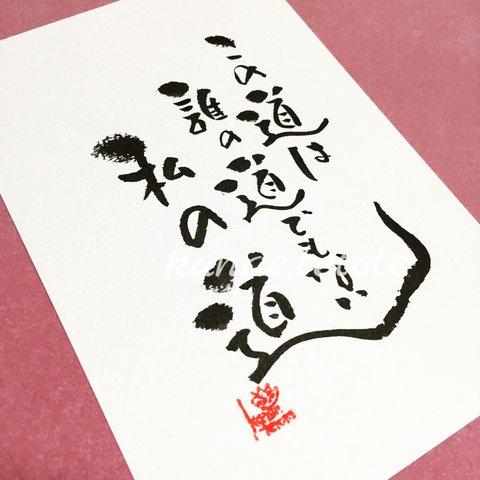 この道は
誰の道でもない
私の道